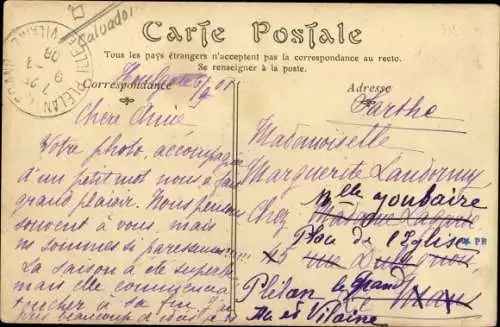 Salvador
Carte Postale
Tous les pays étrangers n'acceptent pas la correspondance au recto.
Se renseigner à la poste.
Correspondance
Adresse
Chère Amie
Votre photo, accompagnée
d'un petit mot nous a fait
grand plaisir. Nous pensons
souvent à vous, mais
nous sommes si paresseuses!!!
La saison a été superbe
mais elle commence à
toucher à sa fin, j'ai
pas beaucoup d'
Sarthe
Mademoiselle
Marguerite
Chez
Mlle Joubaire
Place de l'Eglise
45 rue
Plélan le Grand
Ille et Vilaine
PLELAN